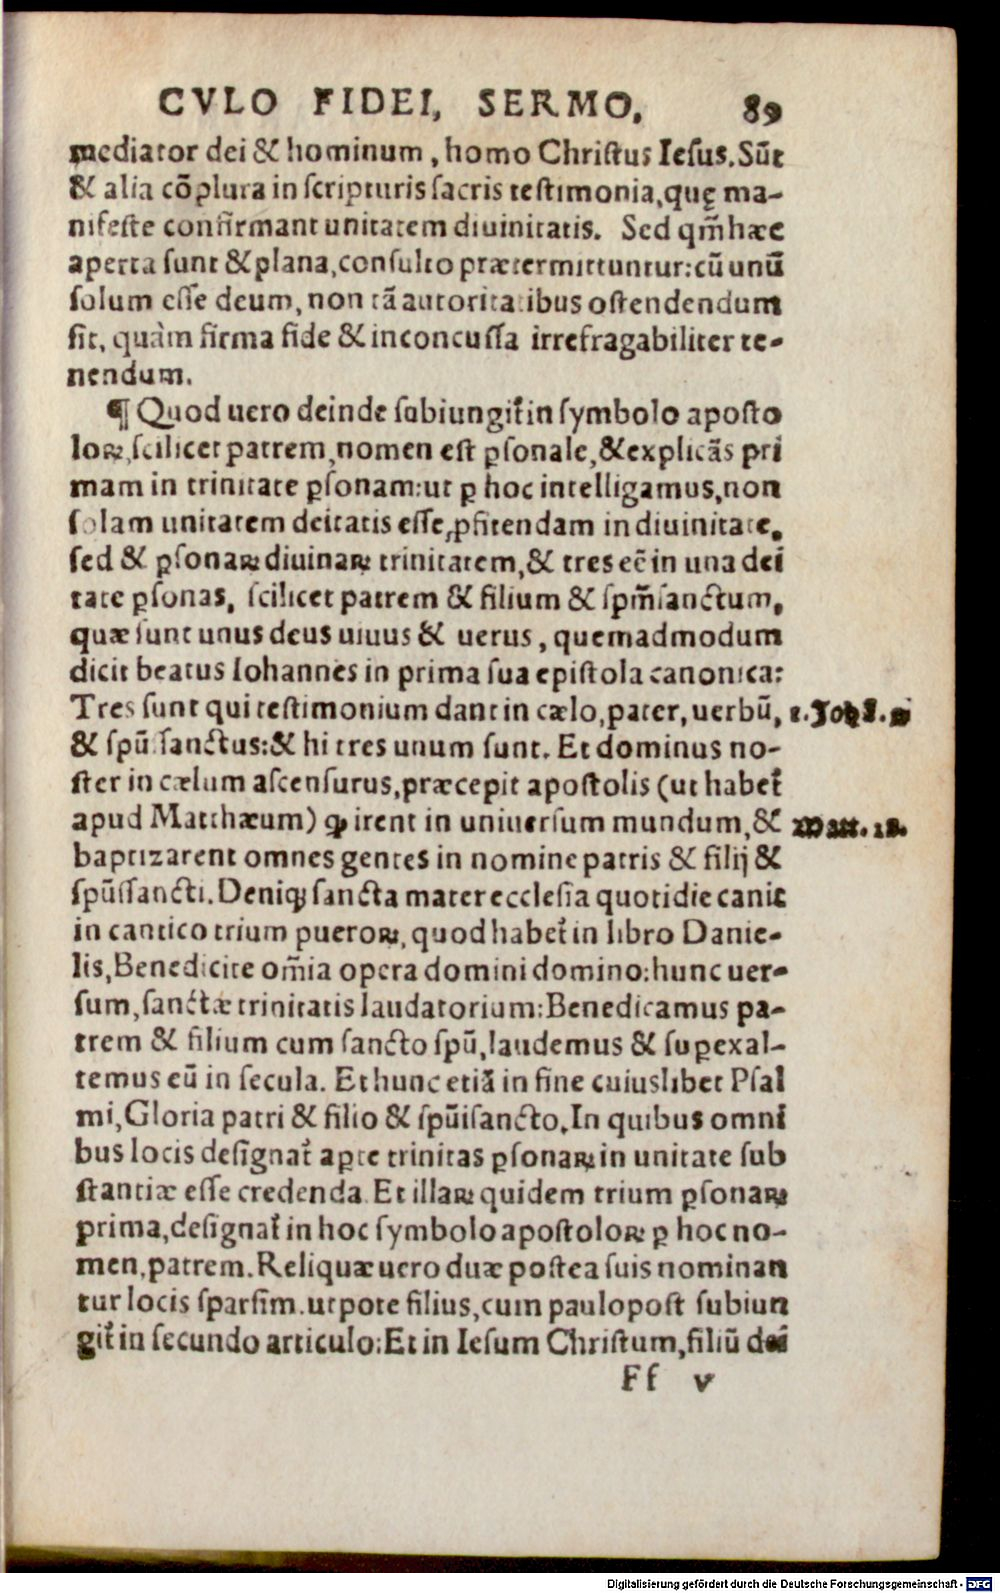 CVLO FIDEI, SERMO. 89
mediator dei & hominum, homo Christus Iesus. Sūt
& alia cōplura in scripturis sacris testimonia, quę ma-
nifeste confirmant unitatem diuinitatis. Sed qm̄ hæc
aperta sunt & plana, consulto prætermittuntur: cū unū
solum esse deum, non tā autoritatibus ostendendum
sit, quàm firma fide & inconcussa irrefragabiliter te-
nendum.
¶ Quod uero deinde subiungit᷑ in symbolo aposto
loꝝ, scilicet patrem, nomen est ꝑsonale, & explicās pri
mam in trinitate ꝑsonam: ut ꝑ hoc intelligamus, non
solam unitatem deitatis esse ꝓfitendam in diuinitate,
sed & ꝑsonaꝝ diuinaꝝ trinitatem, & tres eē in una dei
tate ꝑsonas, scilicet patrem & filium & spm̄sanctum,
quæ sunt unus deus uiuus & uerus, quemadmodum
dicit beatus Iohannes in prima sua epistola canonica:
Tres sunt qui testimonium dant in cælo, pater, uerbū, 1. Joh
& spū sanctus: & hi tres unum sunt. Et dominus no-
ster in cælum ascensurus, præcepit apostolis (ut habet᷑
apud Matthæum) ꝙ irent in uniuersum mundum, & Matt. 28.
baptizarent omnes gentes in nomine patris & filij &
spūssancti. Deniqꝫ sancta mater ecclesia quotidie canit
in cantico trium pueroꝝ, quod habet᷑ in libro Danie-
lis, Benedicite om̄ia opera domini domino: hunc uer-
sum, sanctæ trinitatis laudatorium: Benedicamus pa-
trem & filium cum sancto spū, laudemus & suꝑexal-
temus eū in secula. Et hunc etiā in fine cuiuslibet Psal
mi, Gloria patri & filio & spūisancto. In quibus omni
bus locis designat᷑ aꝑte trinitas ꝑsonaꝝ in unitate sub
stantiæ esse credenda. Et illaꝝ quidem trium ꝑsonaꝝ
prima, designat᷑ in hoc symbolo apostoloꝝ ꝑ hoc no-
men, patrem. Reliquæ uero duæ postea suis nominan
tur locis sparsim. utpote filius, cum paulopost subiun
git᷑ in secundo articulo: Et in Iesum Christum, filiū dei
Ff v
Digitalisierung gefördert durch die Deutsche Forschungsgemeinschaft - DFG